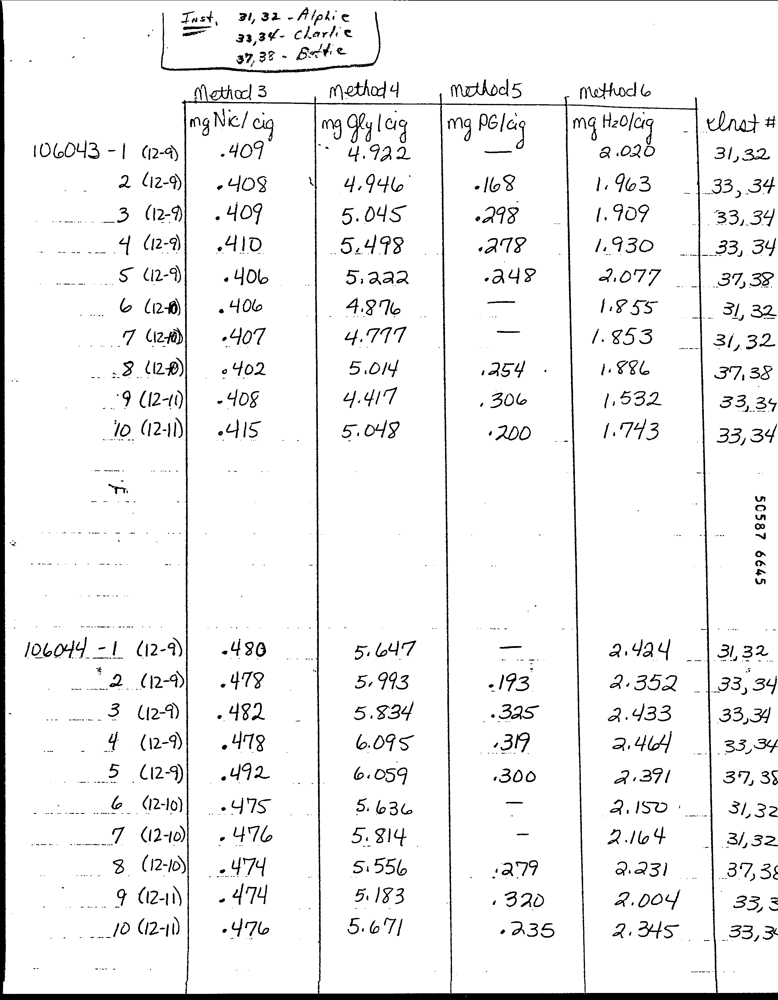 Inst. 31, 32 - Alphie
33,34 - Charlie
37,38 - Bettie
Method 3 Method 4 Method 5 Method 6
mg Nic/cig mg Gly/cig mg PG/cig mg H2O/cig Inst #
106043 - 1 (12-9) .409 4.922 — 2.020 31,32
2 (12-9) .408 4.946 .168 1.963 33, 34
3 (12-9) .409 5.045 .298 1.909 33, 34
4 (12-9) .410 5.498 .278 1.930 33, 34
5 (12-9) .406 5.222 .248 2.077 37,38
6 (12-10) .406 4.876 — 1.855 31, 32
7 (12-10) .407 4.777 — 1.853 31,32
8 (12-10) .402 5.014 .254 1.886 37,38
9 (12-11) .408 4.417 .306 1.532 33,34
10 (12-11) .415 5.048 .200 1.743 33,34
50587 6645
106044 - 1 (12-9) .480 5.647 — 2.424 31,32
2 (12-9) .478 5.993 .193 2.352 33,34
3 (12-9) .482 5.834 .325 2.433 33,34
4 (12-9) .478 6.095 .319 2.464 33,34
5 (12-9) .492 6.059 .300 2.391 37,38
6 (12-10) .475 5.636 — 2.150 31,32
7 (12-10) .476 5.814 — 2.164 31,32
8 (12-10) .474 5.556 .279 2.231 37,38
9 (12-11) .474 5.183 .320 2.004 33,3
10 (12-11) .476 5.671 .235 2.345 33,34